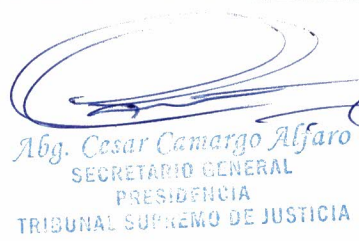 Abg. Cesar Camargo Alfaro
SECRETARIO GENERAL
PRESIDENCIA
TRIBUNAL SUPREMO DE JUSTICIA